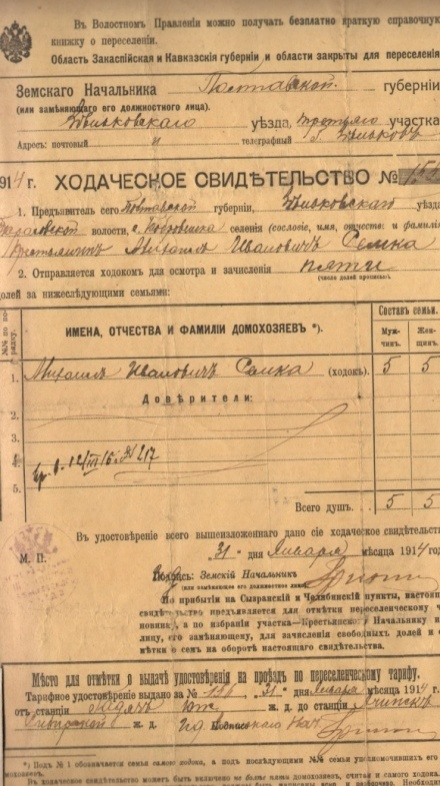 Въ Волостномъ Правленіи можно получать безплатно краткую справочную
книжку о переселеніи.
Области Закаспійская и Кавказскія губерніи и области закрыты для переселенія
Земскаго Начальника Полтавской губерніи
(или замѣняющаго его должностного лица).
Зѣньковскаго уѣзда, третьяго участка
Адресъ: почтовый и телеграфный г. Зѣньковъ
1914 г. ХОДАЧЕСКОЕ СВИДѢТЕЛЬСТВО №
1. Предъявитель сего Полтавской губерніи, Зѣньковскаго уѣзда
волости, с. селенія (сословіе, имя, отчество и фамилія)
Крестьянинъ Михаилъ Ивановичъ Семка
2. Отправляется ходокомъ для осмотра и зачисленія пяти
(число долей прописью).
долей за нижеслѣдующими семьями:
ИМЕНА, ОТЧЕСТВА И ФАМИЛІИ ДОМОХОЗЯЕВЪ *).
Составъ семьи.
Муж-чинъ. Жен-щинъ.
1. Михаилъ Ивановичъ Семка (ходокъ). 5 5
Довѣрители:
2.
3.
4.
5.
Всего душъ. 5 5
Въ удостовѣреніе всего вышеизложеннаго дано сіе ходаческое свидѣтельство
М. П.
„31“ дня Января мѣсяца 1914 года
Подпись: Земскій Начальникъ
(или замѣняющее его должностное лицо).
По прибытіи на Сызранскій и Челябинскій пункты, настоящее
свидѣтельство предъявляется для отмѣтки переселенческому
чиновнику, а по избраніи участка—Крестьянскому Начальнику
лицу, его замѣняющему, для зачисленія свободныхъ долей и
мѣтки о семъ на оборотѣ настоящаго свидѣтельства.
Мѣсто для отмѣтки о выдачѣ удостовѣренія на проѣздъ по переселенческому тарифу.
Тарифное удостовѣреніе выдано за № 136 „31“ дня Января мѣсяца 1914
отъ станціи Гадячъ Юж. ж. д. до станціи Ачинскъ
Сибирской ж. д. Подпись
*) Подъ № 1 обозначается семья самого ходока, а подъ послѣдующими №№ семьи уполномочившихъ его
домохозяевъ.
Въ ходаческое свидѣтельство можетъ быть включено не болѣе пяти домохозяевъ, считая и самого ходока.